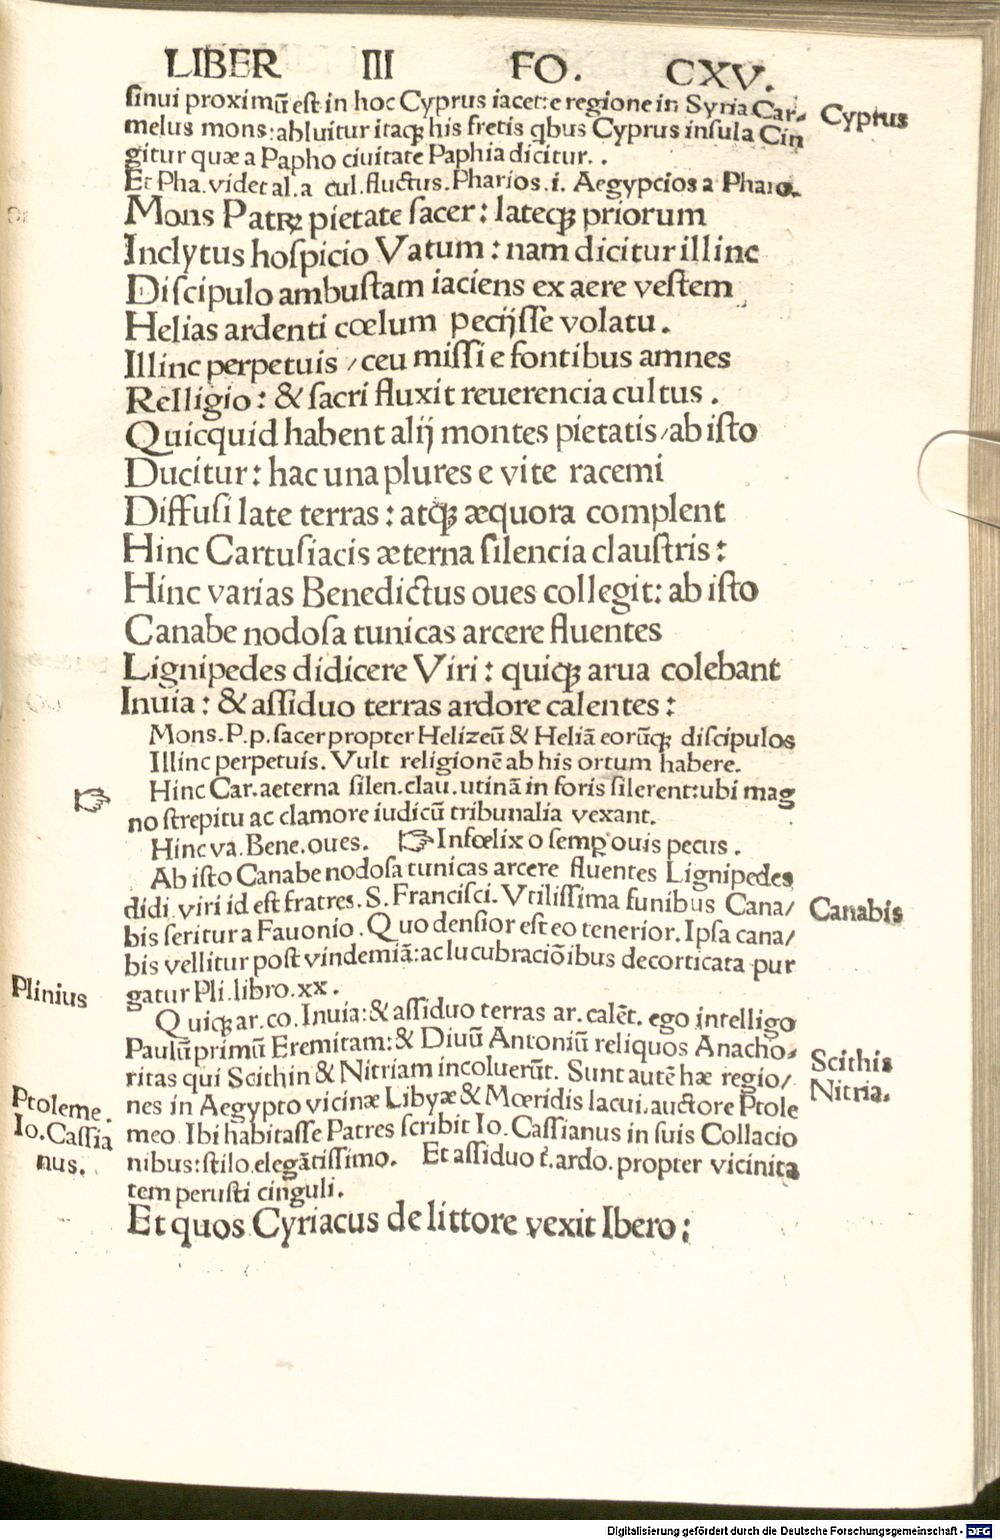 LIBER III FO. CXV.
sinui proximū est in hoc Cyprus iacet:e regione in Syria Car-
Cyprus
melus mons:abluitur itaqȝ his fretis qbus Cyprus insula Cin
gitur quæ a Papho ciuitate Paphia dicitur. .
Et Pha.videt al.a cul.fluctus.Pharios.i. Aegypcios a Pharo.
Mons Patrꝝ pietate sacer: lateqȝ priorum
Inclytus hospicio Vatum: nam dicitur illinc
Discipulo ambustam iaciens ex aere vestem
Helias ardenti cœlum pecijsse volatu.
Illinc perpetuis / ceu missi e fontibus amnes
Relligio: & sacri fluxit reuerencia cultus .
Quicquid habent alij montes pietatis/ab isto
Ducitur: hac una plures e vite racemi
Diffusi late terras: atqȝ æquora complent
Hinc Cartusiacis æterna silencia claustris:
Hinc varias Benedictus oues collegit: ab isto
Canabe nodosa tunicas arcere fluentes
Lignipedes didicere Viri: quiqȝ arua colebant
Inuia: & assiduo terras ardore calentes:
Mons.P.p.sacer propter Helizeū & Heliā eorūqȝ discipulos
Illinc perpetuis. Vult religionē ab his ortum habere.
☞ Hinc Car.aeterna silen.clau.utinā in foris silerent:ubi mag
no strepitu ac clamore iudicū tribunalia vexant.
Hinc va.Bene.oues. ☞ Infœlix o semꝑ ouis pecus .
Ab isto Canabe nodosa tunicas arcere fluentes Lignipedes
didi viri id est fratres.S.Francisci.Vtilissima funibus Cana/
Canabis
bis seritur a Fauonio.Quo densior est eo tenerior.Ipsa cana/
bis vellitur post vindemiā:ac lucubraciōibus decorticata pur
Plinius
gatur Pli.libro.xx.
Quiqȝ ar.co.Inuia:& assiduo terras ar.calēt. ego intelligo
Paulū primū Eremitam:& Diuū Antoniū reliquos Anacho-
Scithis
ritas qui Scithin & Nitriam incoluerūt. Sunt autē hæ regio/
Nitria.
Ptoleme.
nes in Aegypto vicinæ Libyæ & Mœridis lacui.auctore Ptole
Io.Cassia
meo Ibi habitasse Patres scribit Io.Cassianus in suis Collacio
nus.
nibus:stilo elegātissimo. Et assiduo t̄.ardo.propter vicinita
tem perusti cinguli.
Et quos Cyriacus de littore vexit Ibero:
Digitalisierung gefördert durch die Deutsche Forschungsgemeinschaft - DFG